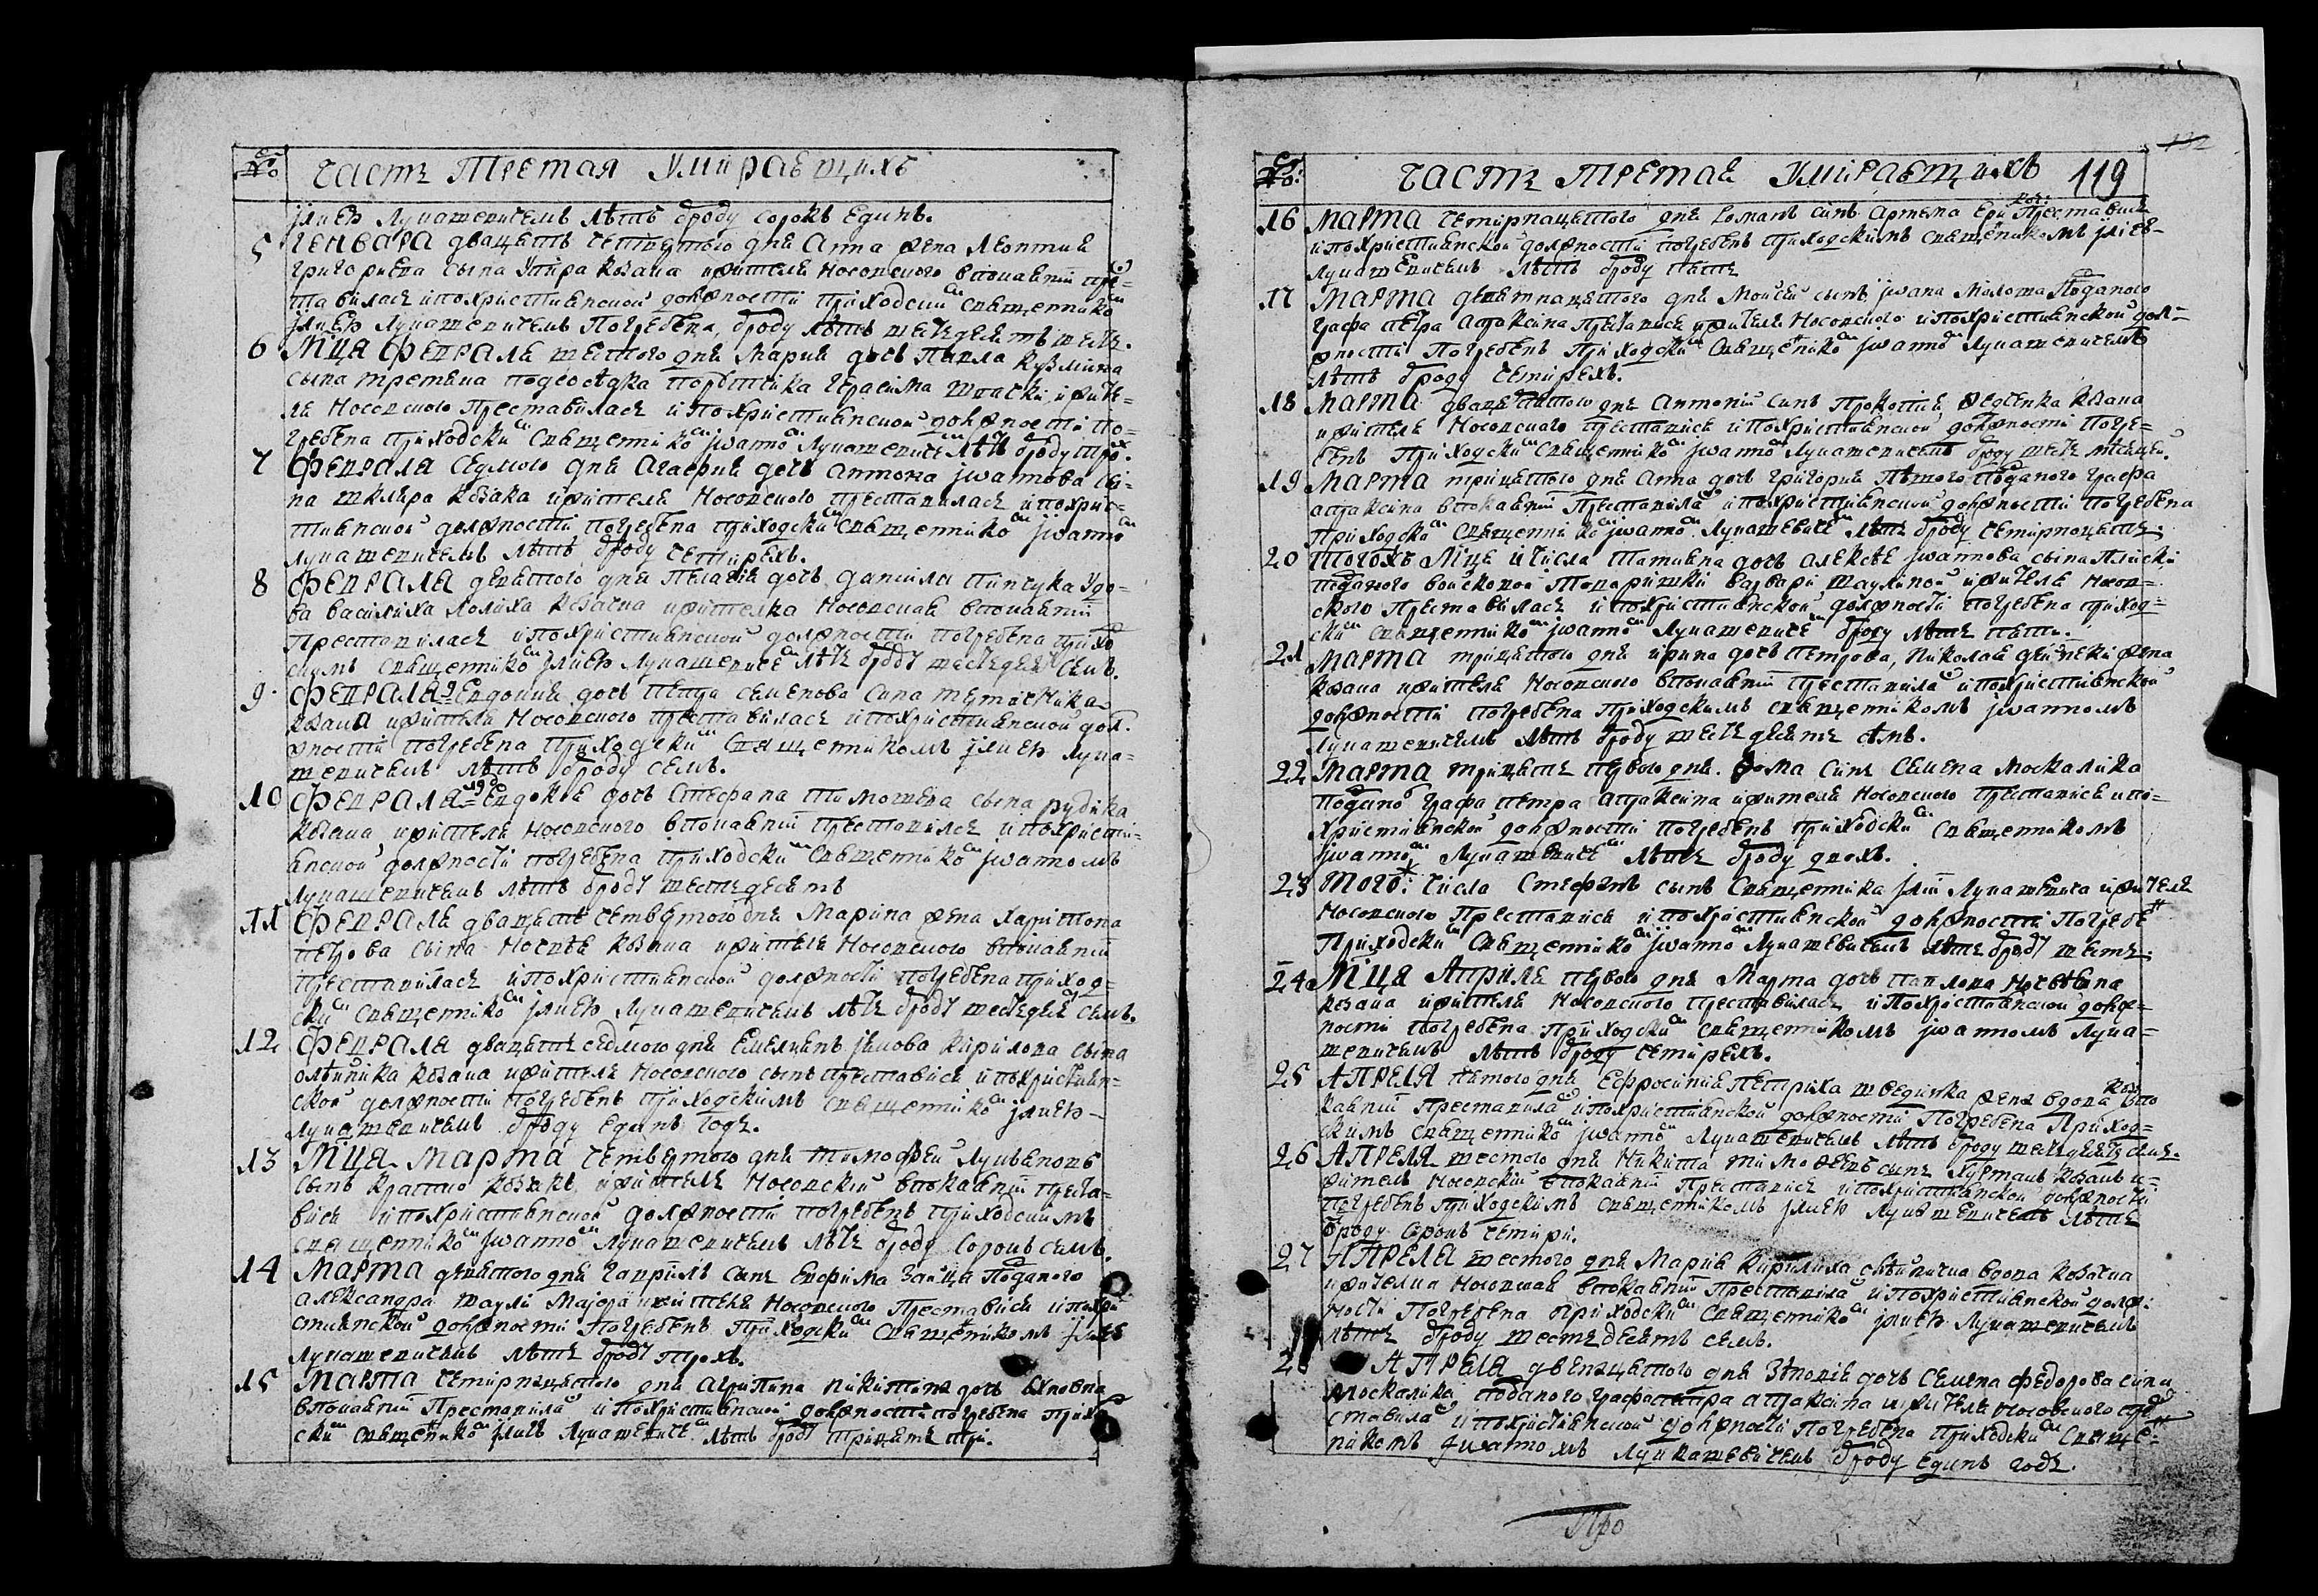 №
Часть Третая Умираещихъ
Илиею Лукашевичемъ лѣтъ ѿроду сорокъ единъ.
5 Генвара двацеть четвертого дня Анна жена Леонтия
Григориева сына козака жителя Носовского впокаянии пре-
ставилась ипохристиянской должности приходским священником
Илиею Лукашевичемъ погребена, ѿроду лѣтъ шестьдесятъ шесть.
6 Мца Февраля шестого дня Мария дочь Павла Кузмина
сына третяка подсосѣдка Герасима жите-
ля Носовского преставилась ипохристиянской должности по-
гребена приходским священником Иванном Лукашевичем лѣтъ ѿроду трох.
7 Февраля седмого дня Агафия дочь Антона Иваннова сы-
на шкляра козака жителя Носовского преставилась ипохрис-
тиянской должности погребена приходским священником Иванном
Лукашевичемъ лѣтъ ѿроду четирехъ.
8 Февраля девятого дня Пелагия дочь Даниила Пинчука удо-
ва Василиха козачка жителка Носовская впокаянии
преставилась ипохристиянской должности погребена приход
скимъ священником Илиею Лукашевичем лѣтъ ѿроду шестьдеся семъ.
9 Февраля 9 Евдокия дочь Семенова сина
козака жителя Носовского преставилась ипохристиянской дол-
жности погребена приходским священникомъ Илиею Лука-
шевичемъ лѣтъ ѿроду семъ.
10 Февраля 19 Евдокия дочь Стефана Тимошева сына Рудика
козака, жителя Носовского впокаянии преставилась ипохристи-
янской должности погребена приходским священником Иванномъ
Лукашевичемъ лѣтъ ѿроду шестьдесятъ
11 Февраля двацеть четвертого дня Марина жена Харитона
Петрова сына Носача козака жителя Носовского впокаянии
преставилась ипохристиянской должности погребена приход-
ским священником Илиею Лукашевичемъ лѣтъ ѿроду шестьдеся семъ.
12 Февраля двацеть седмого дня Емелиянъ Якова Кирилова сына
олѣйника козака жителя Носовского сынъ преставися ипохристиян-
ской должности погребенъ приходскимъ священником Илиею-
Лукашевичемъ ѿроду единъ годъ.
13 Мца Марта четвертого дня Тимофей Лукяновъ
сынъ козакъ жителъ Носовский впокаянии преста-
вися ипохристиянской должности погребенъ приходскимъ
священником Иванном Лукашевичемъ лѣтъ ѿроду сорокъ семъ.
14 Марта девятого дня Гавриилъ синъ Евфима Зайца подданого
Александра Шаули Маіора жителя Носовского преставися ипохри
стиянской должности погребенъ приходским священникомъ Илиею
Лукашевичемъ лѣтъ ѿроду трохъ.
15 Марта четирнацетого дня Агрипина Никитина дочь
впокаянии преставилас ипохристиянской должности погребена прихо
ским священником Илиею Лукашевичем лѣтъ ѿроду трицеть три.
№ Часть Третая Умираещихъ 119
16 Марта четирнацетого дня Романъ синъ Артема преставися
ипохристиянской должности погребенъ приходскимъ священникомъ Илиею-
Лукашевичемъ лѣтъ ѿроду пять
17 Марта девятнацетого дня Моисей сынъ Ивана Молоша подданого
графа Петра Апраксина преставися жителя Носовского ипохристиянской дол-
жности погребенъ приходским священником Иванном Лукашевичемъ
лѣтъ ѿроду четирехъ.
18 Марта дваце пятого дня Антоний синъ Прокопия Феденка козака
жителя Носовского преставися ипохристиянской должности погре-
бенъ приходским священником Иванном Лукашевичемъ ѿроду шесть мѣсяцей.
19 Марта трицетого дня Анна дочь Григория подданого графа
Апраксина впокаянии преставилас ипохристиянской должности погребена
приходским священником Иванном Лукашевичем лѣтъ ѿроду четирнацеть.
20 Тогожъ мца и числа Татияна дочь Алексѣя Иваннова сына
подданого Варвари Шаулиной жителя Носов-
ского преставилась ипохристиянской должности погребена приход-
ским священником Иванном Лукашевичем ѿроду лѣтъ пять.
21 Марта трицетого дня Ирина дочь Петрова, Николая жена
козака жителя Носовского впокаянии преставилас ипохристиянской
должности погребена приходскимъ священникомъ Иванномъ
Лукашевичемъ лѣтъ ѿроду шестьдесятъ сѣмъ.
22 Марта трицеть первого дня. Фома синъ Семена Москалика
подданого графа Петра Апраксина жителя Носовского преставися ипо-
християнской должности погребенъ приходским священникомъ
Иванном Лукашевичем лѣтъ ѿроду двохъ.
23 Того ж числа Стефанъ сынъ священника Илии Лукашевича жителя
Носовского преставися ипохристиянской должности погребен
приходским священником Иванном Лукашевичемъ лѣтъ ѿроду шесть.
24 Мца Априля первого дня Марта дочь Павлова
козака жителя Носовского преставилась ипохристиянской долж-
ности погребена приходским священникомъ Иванномъ Лука-
шевичемъ лѣтъ ѿроду четирехъ.
25 Априля пятого дня Ефросиния Петриха вдова впо
каянии преставилас ипохристиянской должности погребена приход-
скимъ священником Иванном Лукашевичемъ лѣтъ ѿроду шестьдесятъ семъ.
26 Априля шестого дня Никита Тимофеевъ сынъ козакъ и-
житель Носовский впокаянии преставися ипохристиянской должности
погребенъ приходскимъ священникомъ Илиею Лукашевичемъ лѣтъ
ѿроду сорокъ четири.
27 Априля шестого дня Мария Кирилиха вдова козачка
жителка Носовская впокаянии преставилас ипохристиянской долж:
ности погребена приходским священником Илиею Лукашевичемъ
лѣтъ ѿроду шестьдесятъ семъ.
28 Априля двенацетого дня Зѣновия дочь Семена Федорова сина
Москалика подданого графа Петра Апраксина жителя Носовского пре
ставилас ипохристиянской должности погребена приходским священ
никомъ Иванномъ Лукашевичемъ ѿроду единъ годъ.
Про